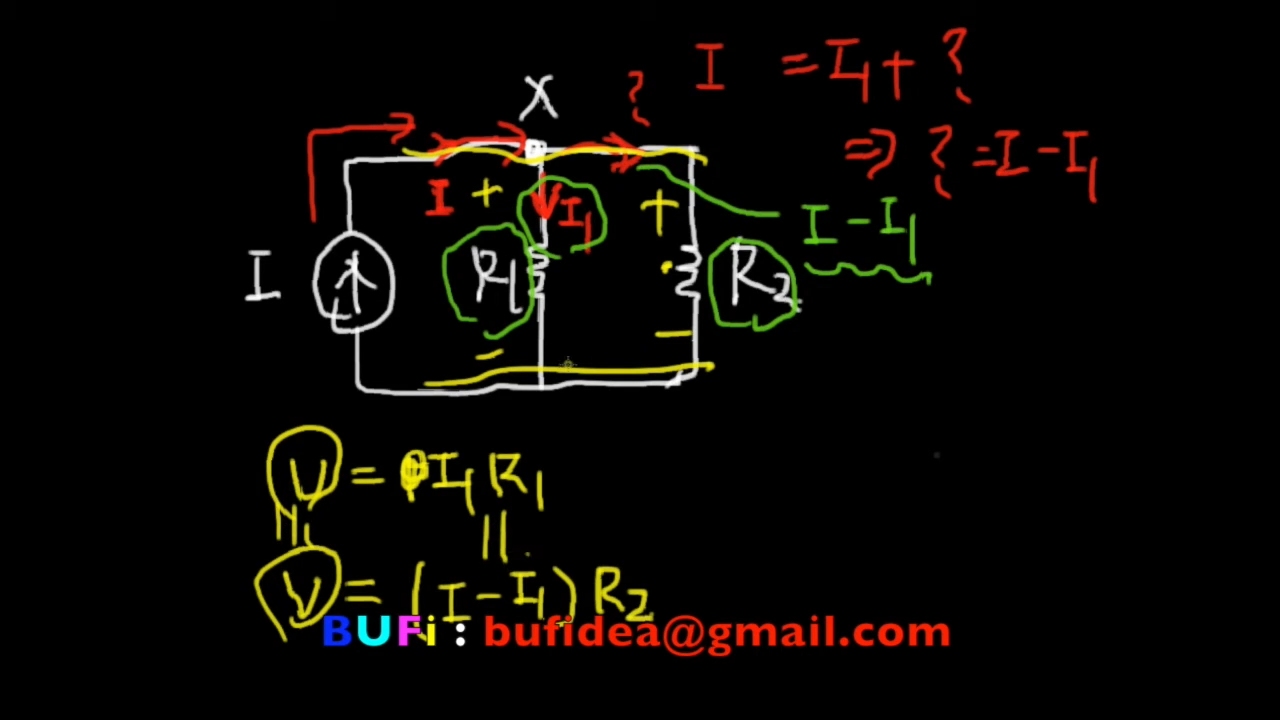 I = I1 + ?
X
?
⇒ ? = I - I1
I + I1 +
I - I1
I R1 R2
- -
V = I1 R1
||
V = (I - I1) R2
BUFi : bufidea@gmail.com